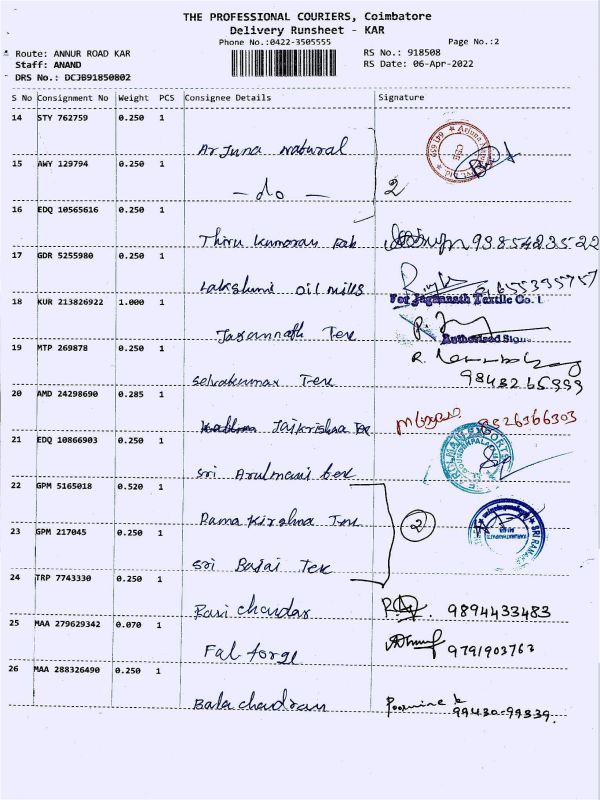 THE PROFESSIONAL COURIERS, Coimbatore
Delivery Runsheet - KAR
Phone No.:0422-3505555 Page No.:2
Route: ANNUR ROAD KAR RS No.: 918508
Staff: ANAND RS Date: 06-Apr-2022
DRS No.: DCJB91850802
S No Consignment No Weight PCS Consignee Details Signature
14 STY 762759 0.250 1
Arjuna natural
15 AWY 129794 0.250 1
- do - 2
16 EDQ 10565616 0.250 1
Thiru kumaran 9385423522
17 GDR 5255980 0.250 1
Lakshmi oil mills
18 KUR 213826922 1.000 1 For Jagannath Textile Co. L
Jagannath Tex Authorised Sign
19 MTP 269878 0.250 1
Selvakumar Tex
20 AMD 24298690 0.285 1
Jaikrishna Tex 9526366303
21 EDQ 10866903 0.250 1
Sri Arulmani tex
22 GPM 5165018 0.520 1
Rama Kirshna Tex 2
23 GPM 217045 0.250 1
Sri Balai Tex
24 TRP 7743330 0.250 1
Ravi chandar 9894433483
25 MAA 279629342 0.070 1
Fal forge 9791903763
26 MAA 288326490 0.250 1
Bala chandran 99430-99339.